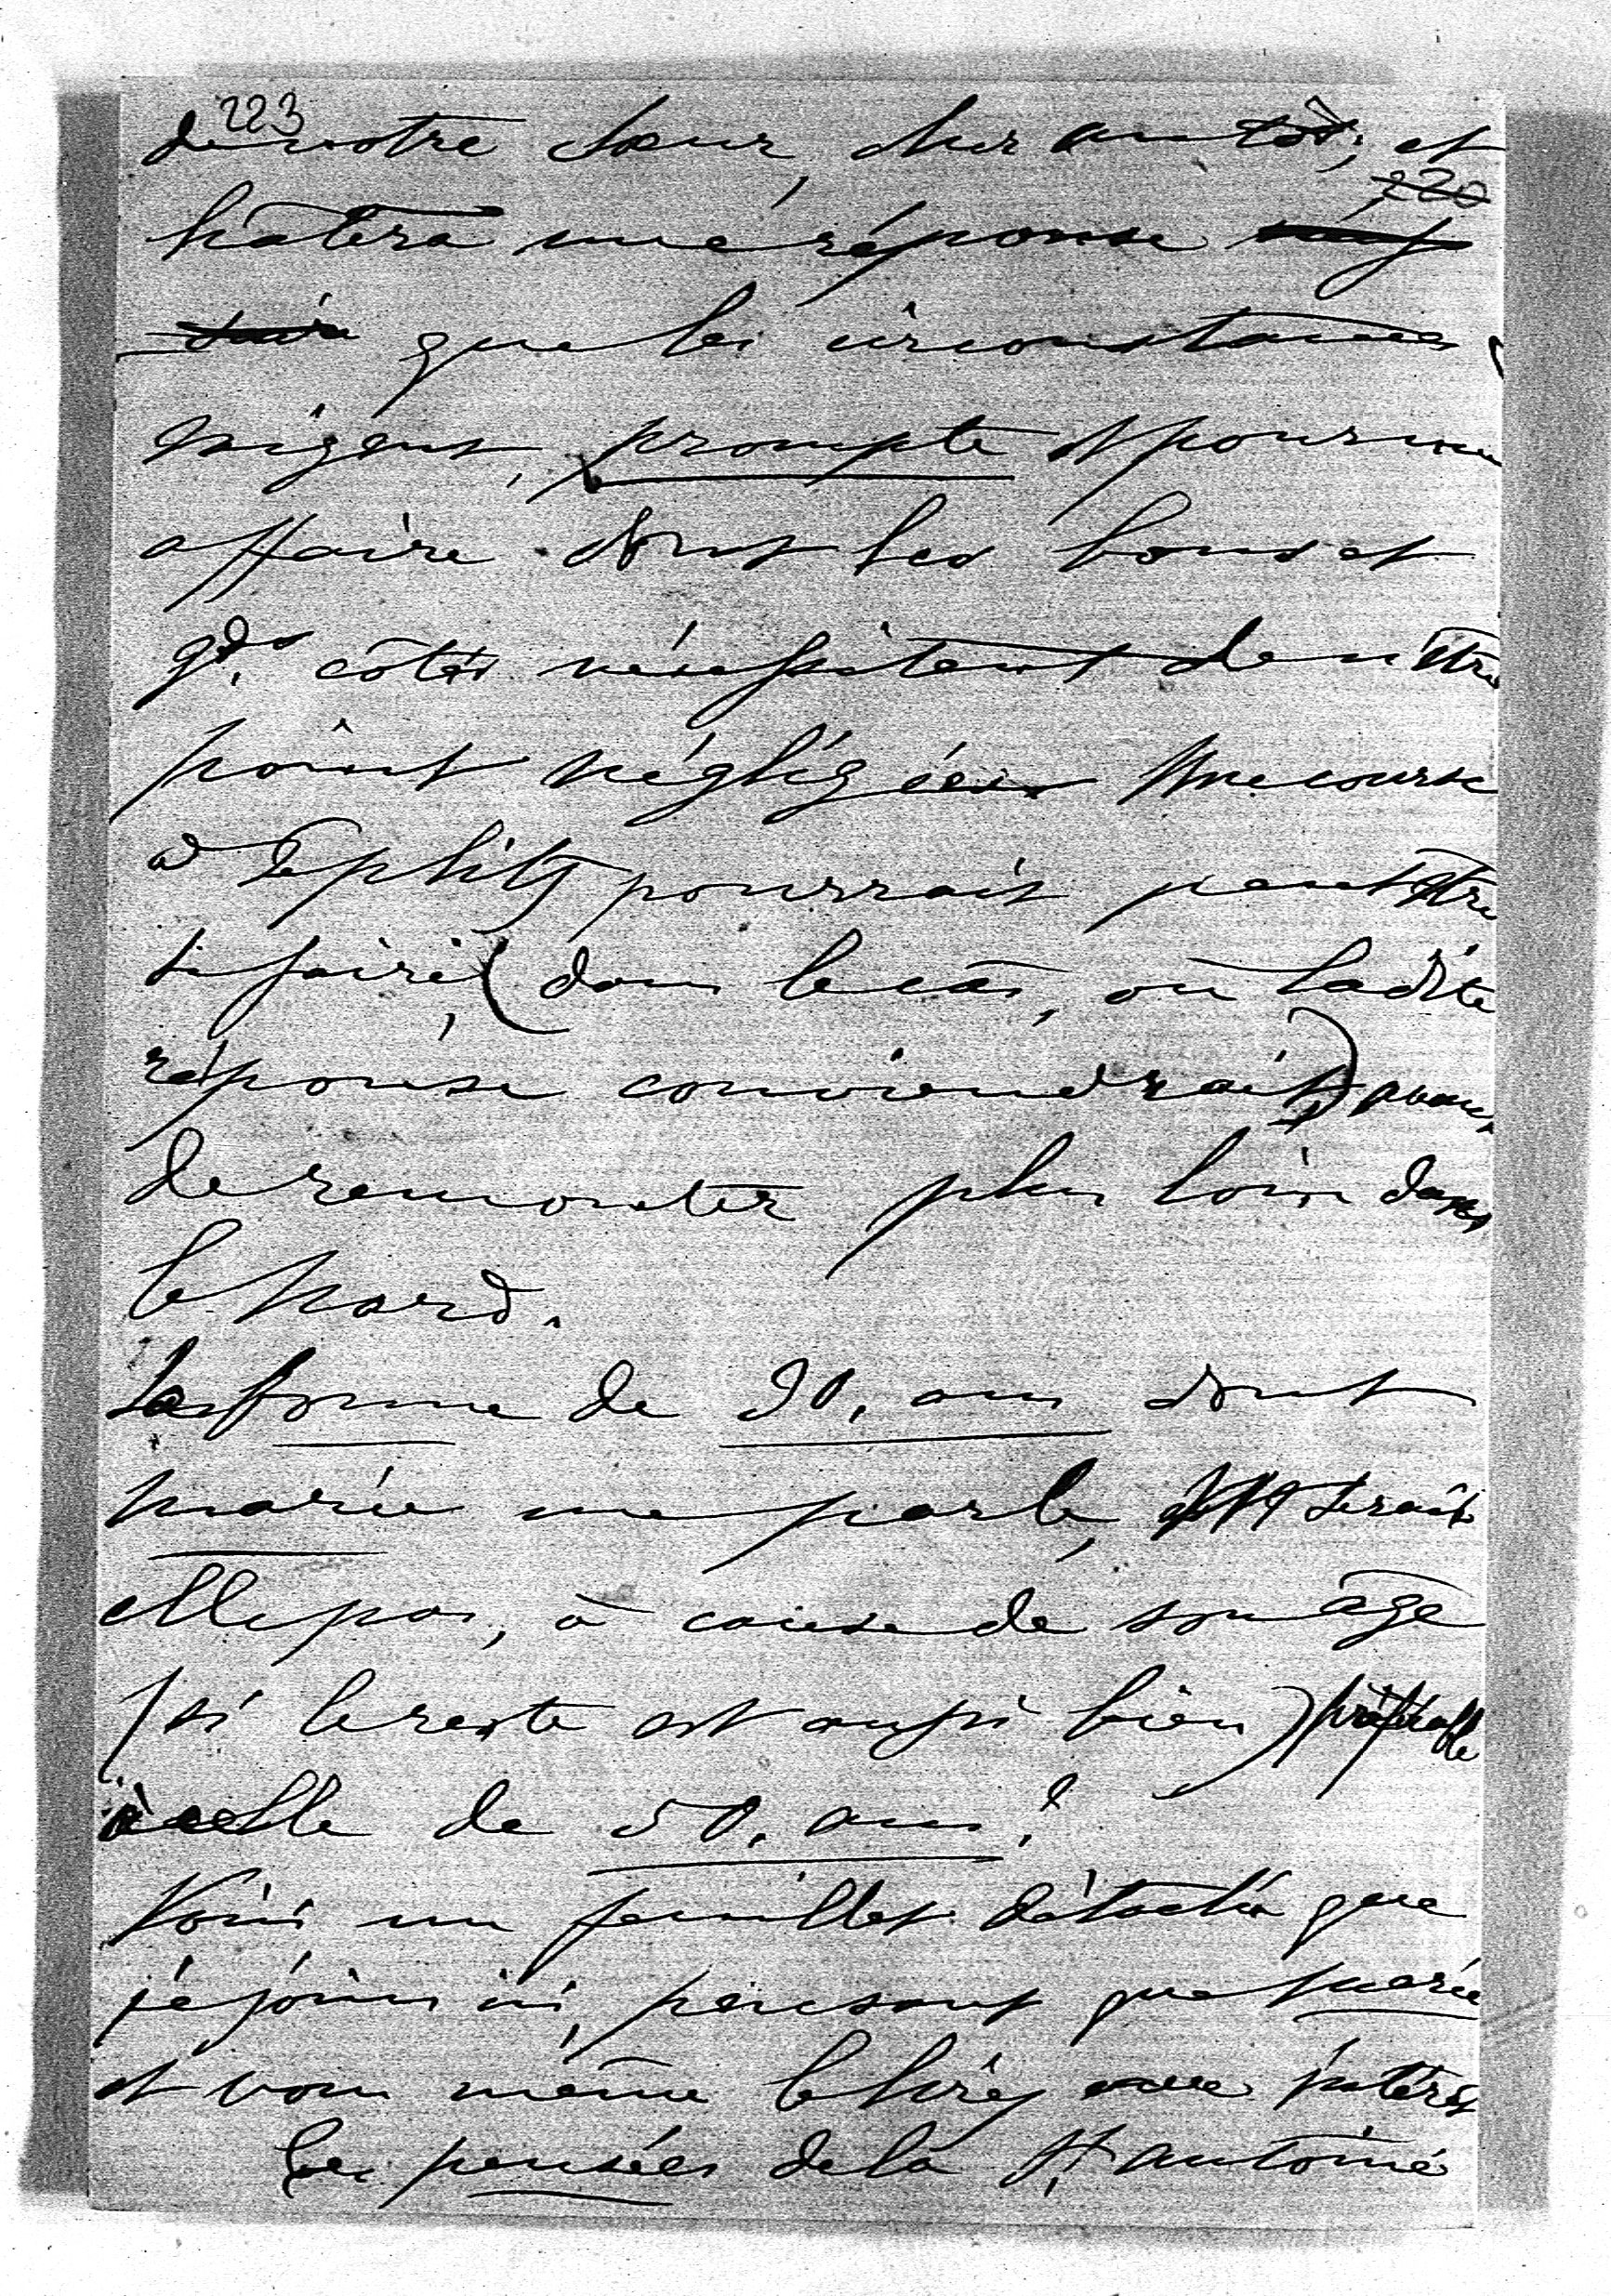 223
de votre sœur, cher ; et
220
hâtera une réponse
que les circonstances
exigent, prompte et pour une
affaire dont les bons et
gds. côtés nécessitent de n'être
point négligés une course
à Teplitz pourrait peut être
se faire, (dans le cas, où ladite
réponse conviendrait) avant
de remonter plus loin dans
le Nord.
La femme de 30, ans dont
Marie me parle, ne serait
elle pas, à cause de son âge
(si le reste est aussi bien) préférable
à celle de 50, ans?
Voici un feuillet détaché que
je joins ici, pensant que Marie
et vous même le lirez avec intérêt
Les pensées de la St. Antoine